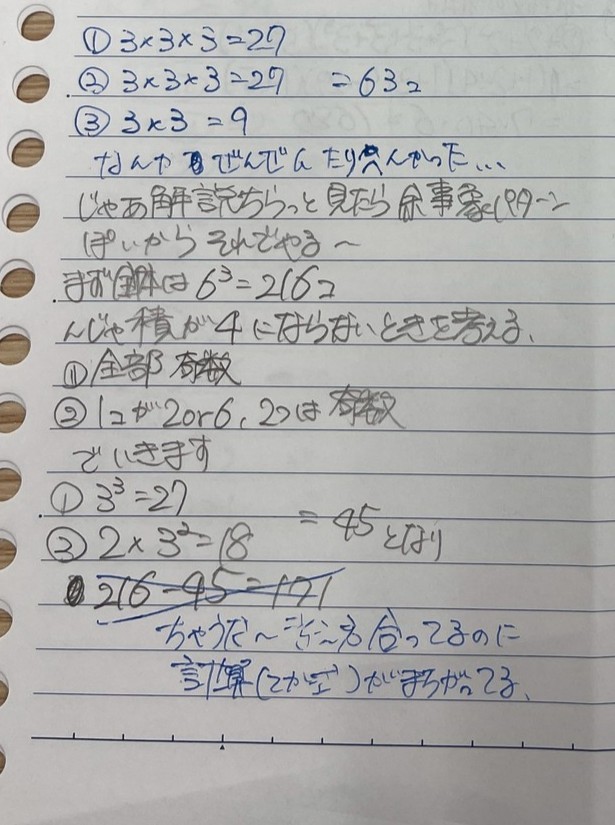 ① 3×3×3=27
② 3×3×3=27 =63コ
③ 3×3=9
なんか ぜんぜんたりんかった…
じゃあ解説ちらっと見たら余事象パターン
ぽいからそれでやる〜
まず全体は 6³=216コ
んじゃ積が4にならないときを考える、
① 全部奇数
② 1コが2or6、2つは奇数
でいきます
① 3³=27
② 2×3²=18 =45 となり
216-45=171
ちゃうな〜 も合ってるのに
計算( )がまちがってる、